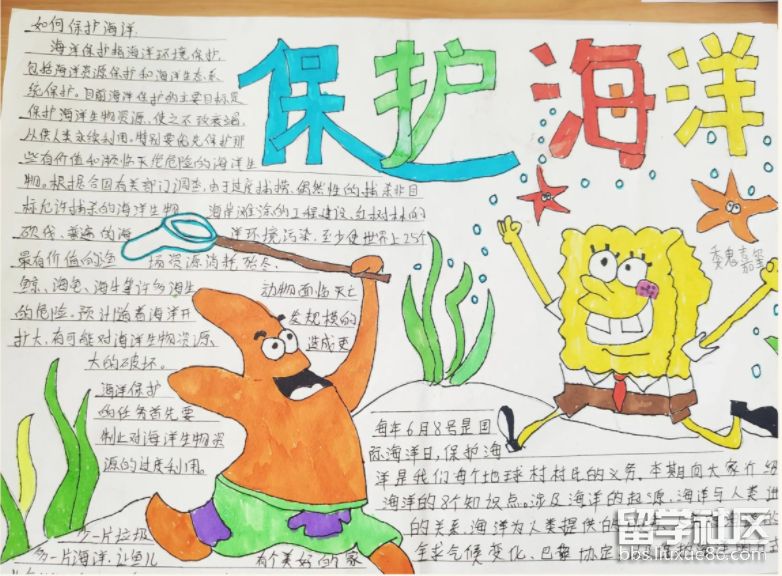 保护海洋
如何保护海洋
海洋保护指海洋环境保护,
包括海洋资源保护和海洋生态系
统保护。目前海洋保护的主要目标是
保护海洋生物资源,使之不致衰竭,
以供人类永续利用。特别要优先保护那
些有价值和濒临灭绝危险的海洋生
物。根据合国有关部门调查,由于过度捕捞、偶然性的捕杀非目
标允许捕杀的海洋生物 海岸滩涂的工程建设、红树林的
砍伐、普遍的海 洋环境污染,至少使世界上25个
最有价值的渔 场资源消耗殆尽,
鲸、海龟、海牛等许多海生 动物面临灭亡
的危险。预计随着海洋开 发规模的
扩大,有可能对海洋生物资源 造成更
大的破坏。
海洋保护
的任务首先要
制止对海洋生物资
源的过度利用。
少一片垃圾
多一片海洋,让鱼儿 有个美好的家
嘉玺
每年6月8号是国
际海洋日,保护海
洋是我们每个地球村村民的义务。本期向大家介绍
海洋的8个知识点。涉及海洋的起源、海洋与人类
的关系、海洋为人类提供的
全球气候变化、巴黎协定
留学社区
bbs.liuxue86.com